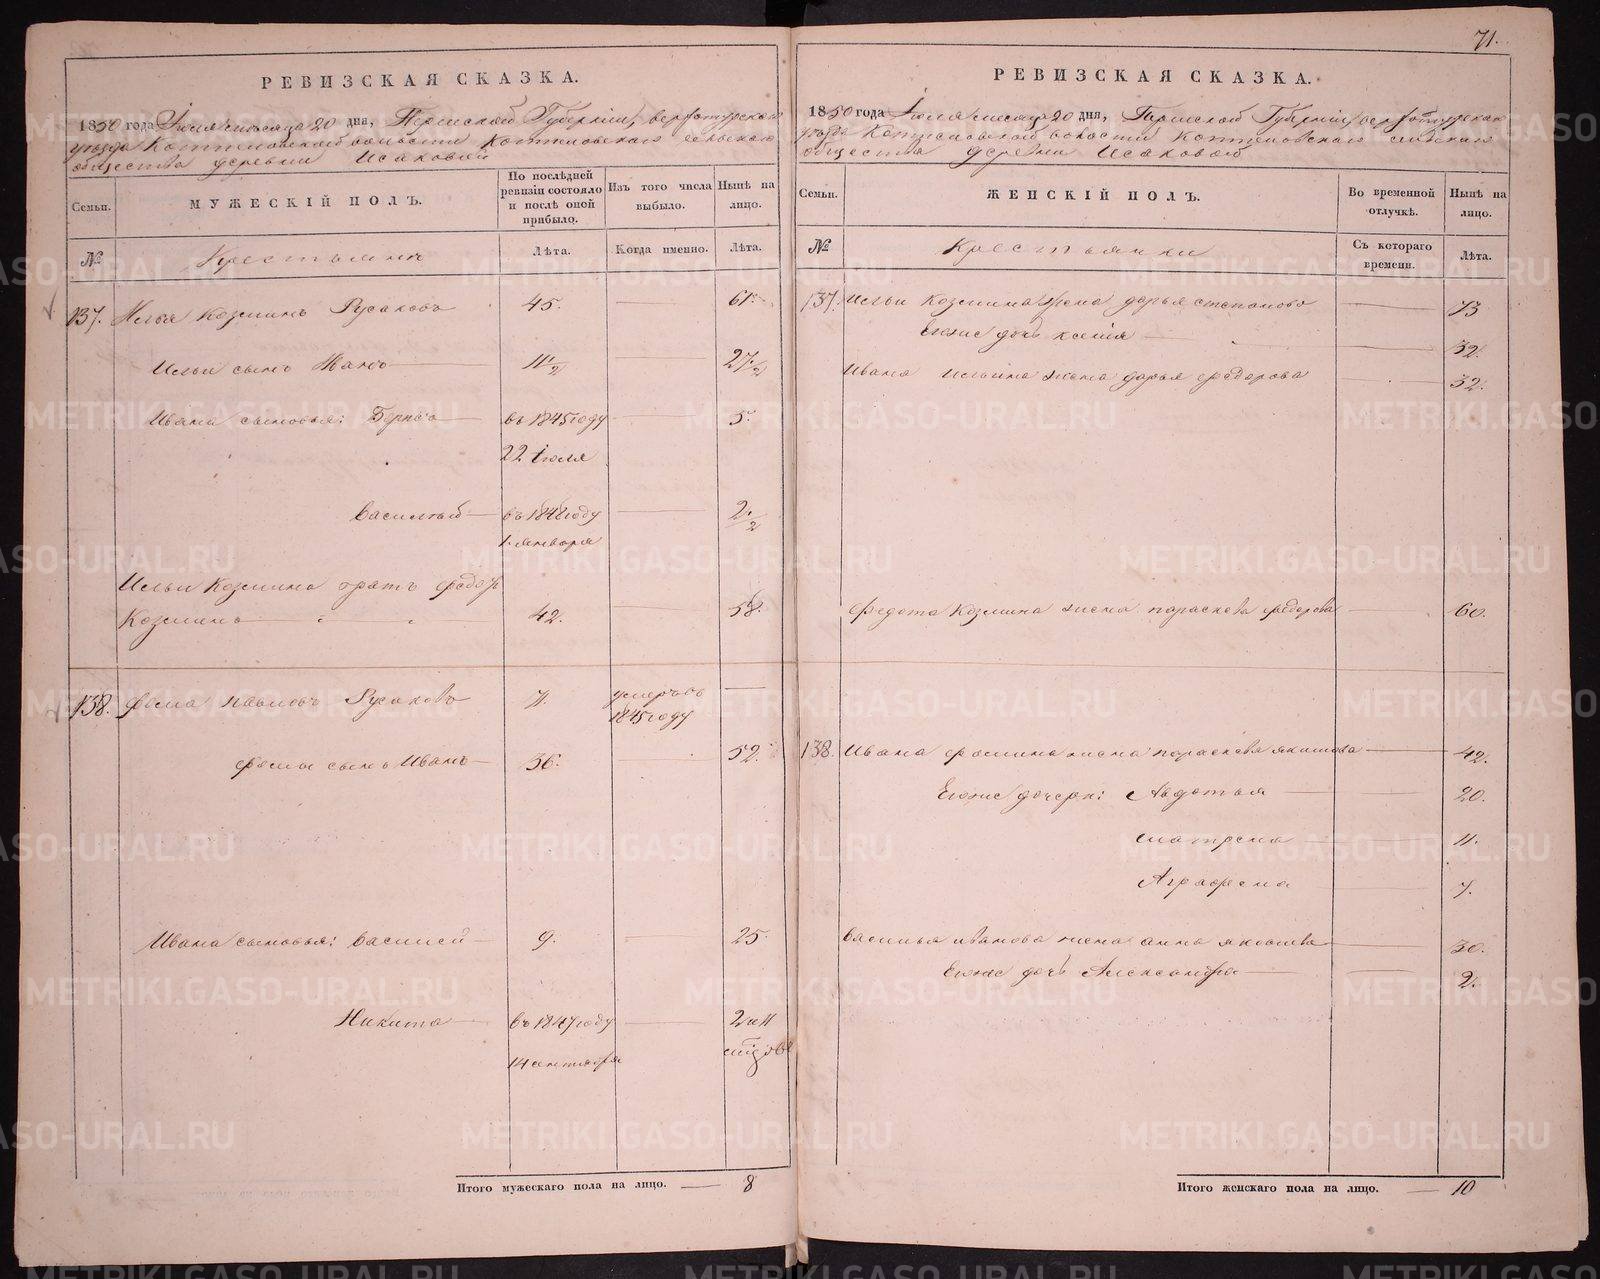 71.
РЕВИЗСКАЯ СКАЗКА.
1850 года Іюля месяца 20 дня, Пермской Губерніи, верхотурскаго
уезда Коптеловской волости Коптеловскаго сельскаго
общества деревни Исаковой
Семьи.
МУЖЕСКІЙ ПОЛЪ.
По послѣдней ревизіи состояло и послѣ оной прибыло.
Изъ того числа выбыло.
Нынѣ на лицо.
№
Крестьяне
Лѣта.
Когда именно.
Лѣта.
137. Илья Козминъ Русаковъ 45. 61.
Ильи сынъ Иванъ 11 1/2 27 1/2
Ивана сыновья: въ 1845 году 5.
22 Іюля
Василий въ 1848 году 2 1/2
1. января
Ильи Козмина братъ
Козминъ 42. 58.
138. Фома Павловъ Русаковъ 71. умеръ въ
1845 году
Фомы сынъ Иванъ 36. 52.
Ивана сыновья: Василей 9. 25.
Никита въ 1847 году 2 и 11
14 сентября
Итого мужескаго пола на лицо. 8
РЕВИЗСКАЯ СКАЗКА.
1850 года Іюля месяца 20 дня, Пермской Губерніи, верхотурскаго
уезда Коптеловской волости Коптеловскаго сельскаго
общества деревни Исаковой
Семьи.
ЖЕНСКІЙ ПОЛЪ.
Во временной отлучкѣ.
Нынѣ на лицо.
№
Крестьянки
Съ котораго времени.
Лѣта.
137. Ильи Козмина жена дарья степанова 73
Егоже дочь ксенія 32.
Ивана Ильина жена дарья федорова 32.
Федота Козмина жена параскева федорова 60.
138. Ивана фомина жена параскева якимова 42.
Егоже дочери: Авдотья 20.
матрена 11.
Аграфена 7.
Василья иванова жена анна яковлева 30.
Егоже дочь Александра 2.
Итого женскаго пола на лицо. 10
METRIKI.GASO-URAL.RU